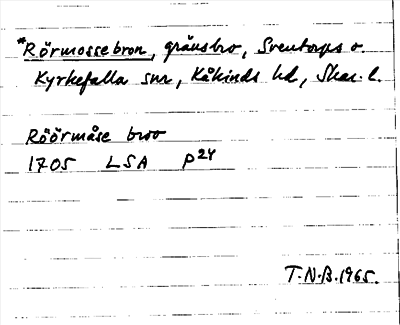 *Rörmossebron, gränsbro, Sventorps o.
Kyrkefalla snr, Kåkinds hd, Skar. l.
Röörmåse broo
1705 LSA P24
T.N.B. 1965.